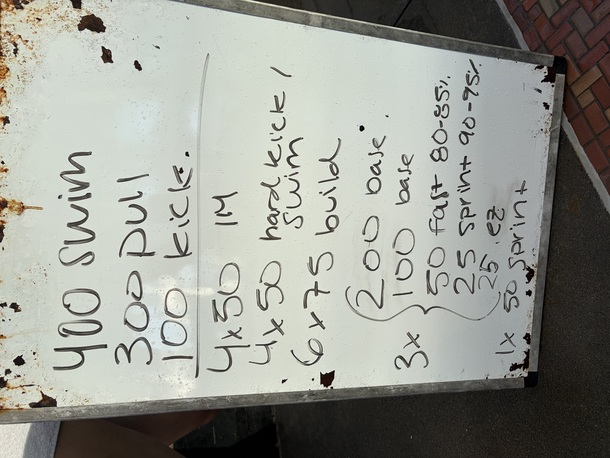 400 swim
300 pull
100 kick.
4x50 IM
4x50 hard kick /
swim
6x75 build
200 base.
3x 100 base
50 fast 80-85%
25 sprint 90-95%
25 ez
1x 50 sprint